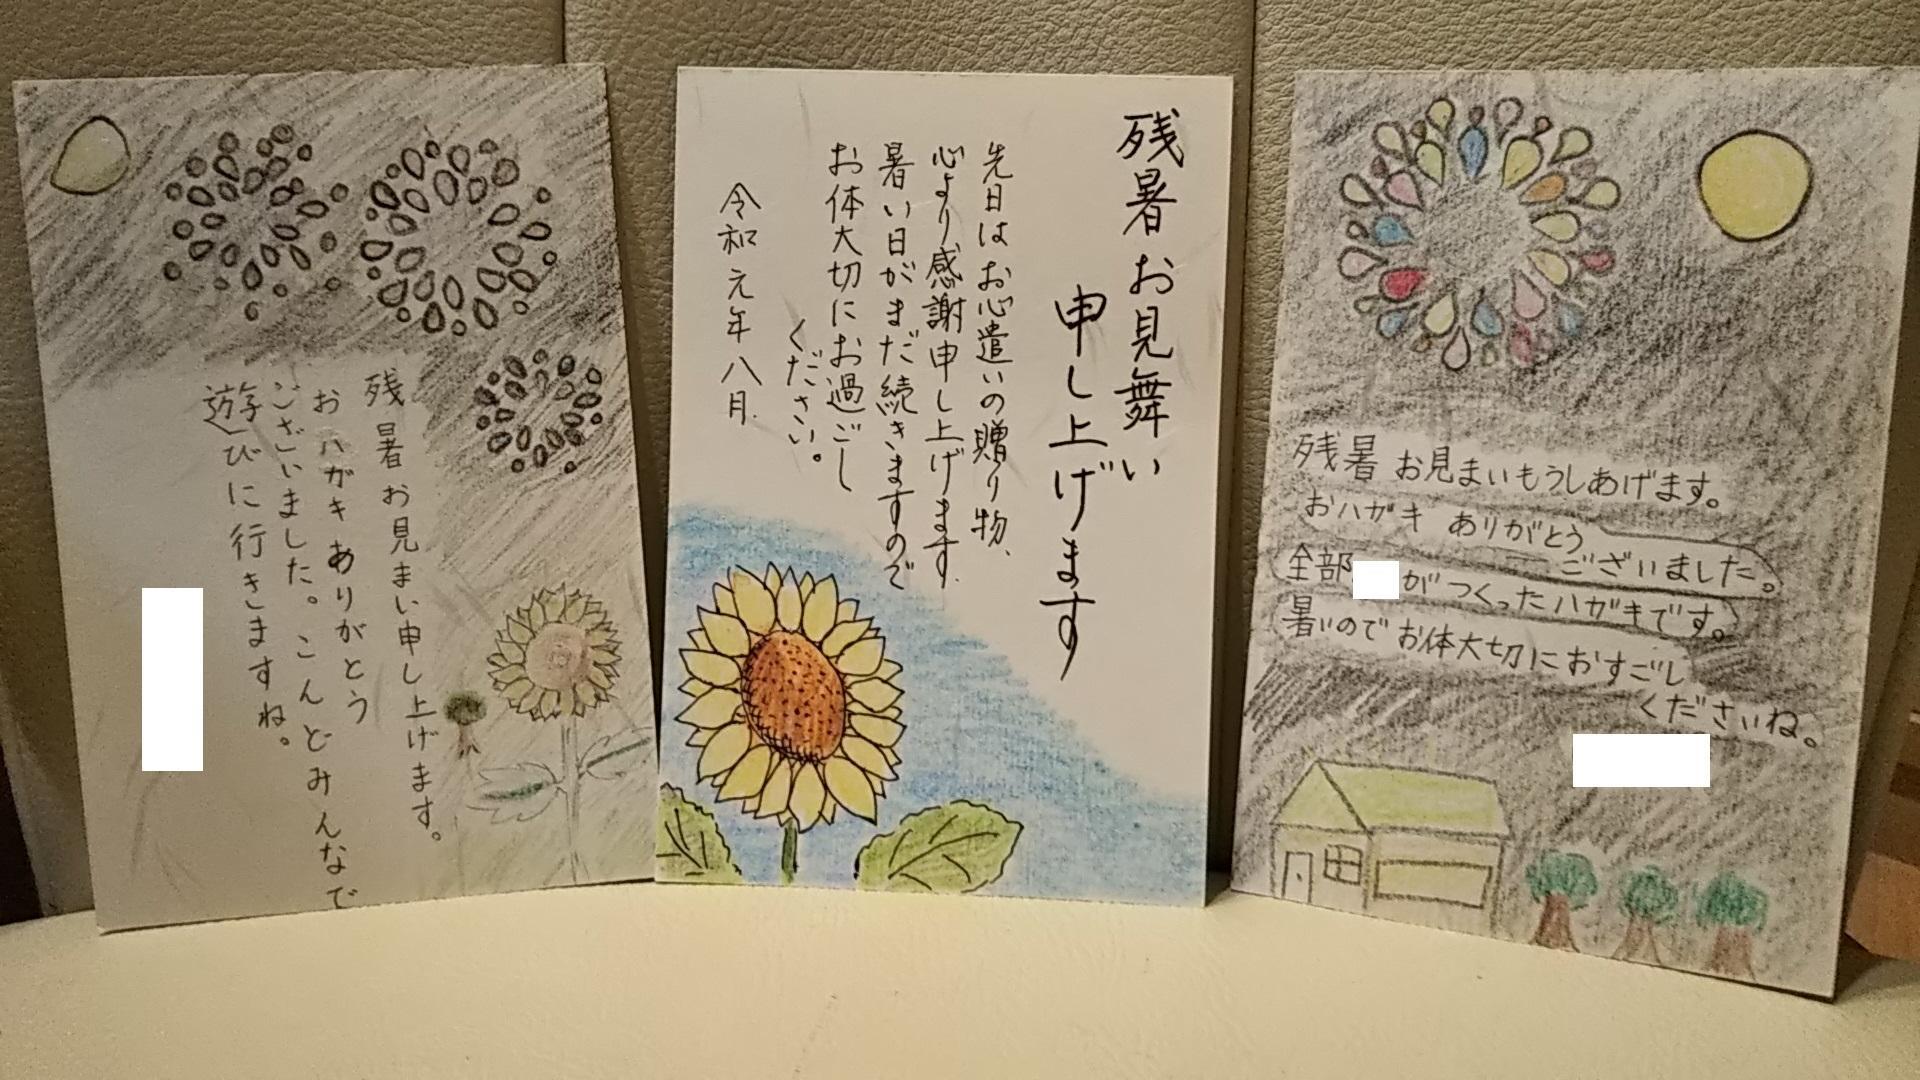 残暑お見まい申し上げます。
おハガキありがとう
ございました。こんどみんなで
遊びに行きますね。
残暑お見舞い
申し上げます
先日はお心遣いの贈り物、
心より感謝申し上げます。
暑い日がまだ続きますので
お体大切にお過ごし
ください。
令和元年八月
残暑 お見まいもうしあげます。
おハガキ ありがとう
ございました。
全部 がつくったハガキです。
暑いので お体大切に おすごし
くださいね。